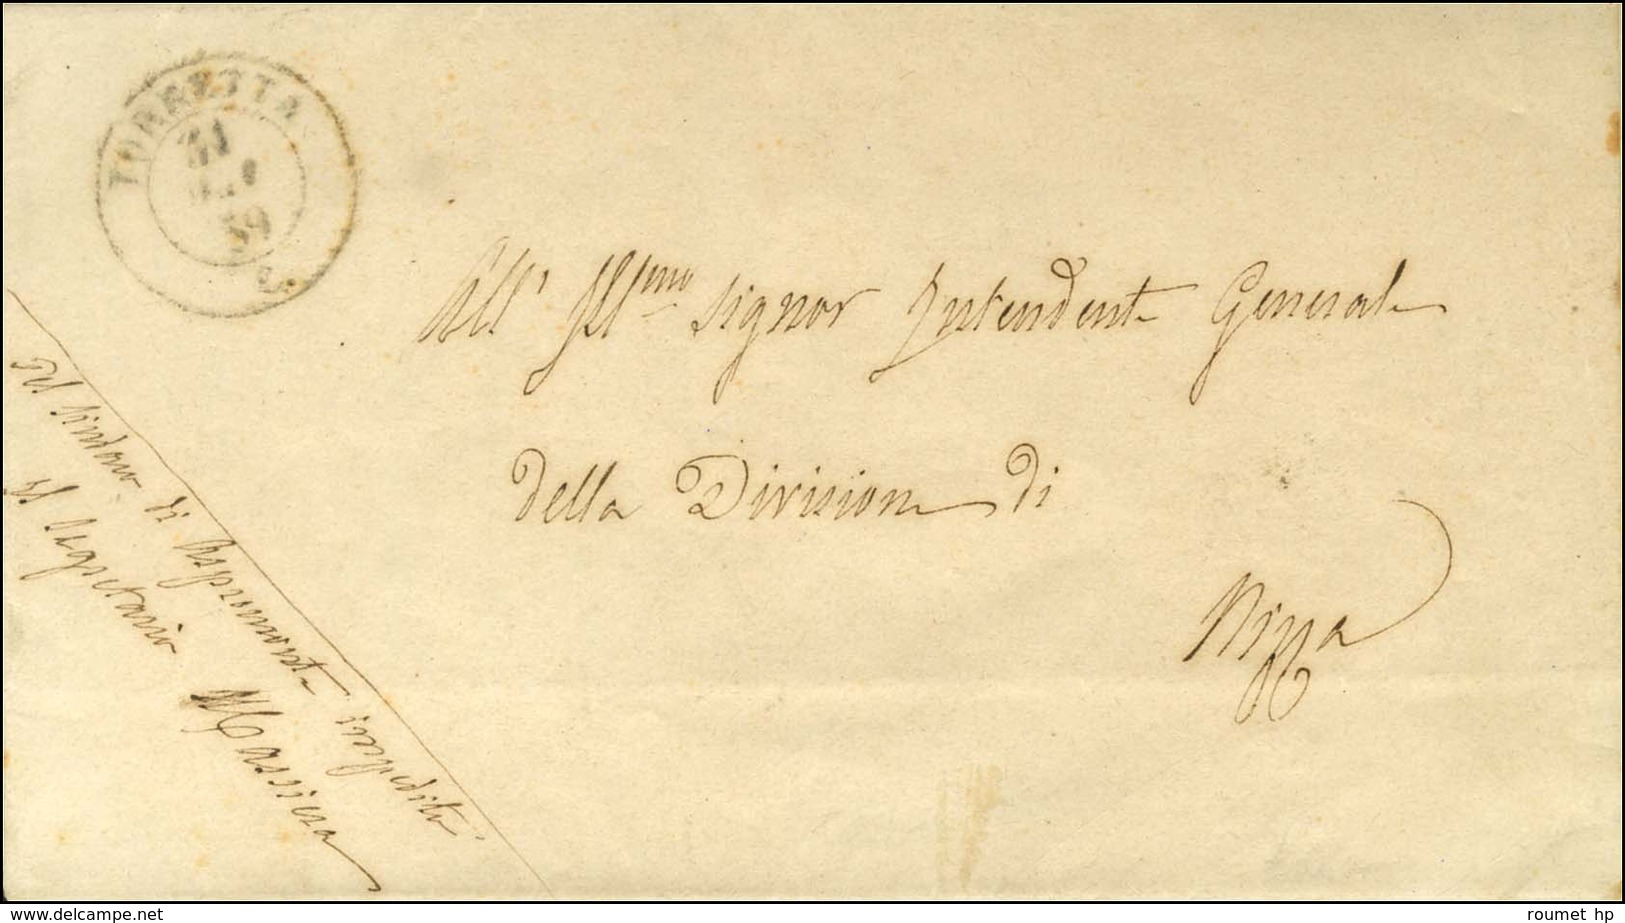 TORRETTA
31
59
All' Ill.mo Signor Intendente Generale
della Divisione di
Nizza
Del Sindaco di Aspremonte impedito
Il Segretario Massiera
www.delcampe.net
roumet hp